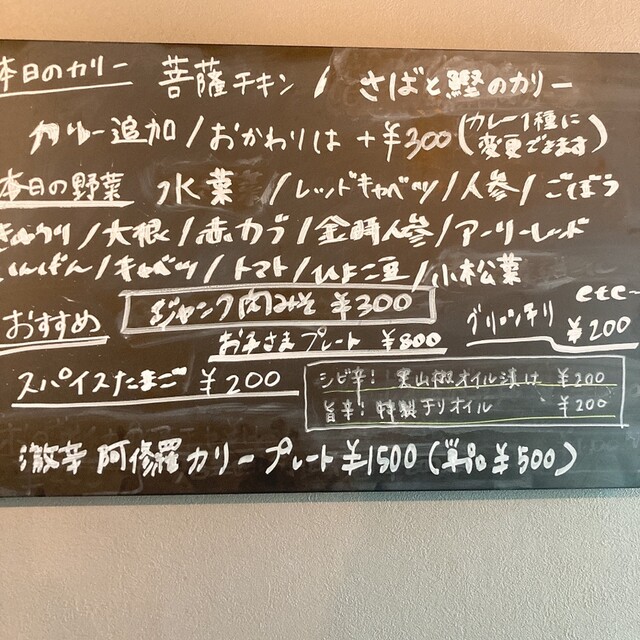 本日のカリー 菩薩チキン / さばと鰹のカリー
カリー追加/おかわりは +¥300 (カレー1種に変更できます)
本日の野菜 水菜 /レッドキャベツ/人参/ごぼう
きゅうり/大根/赤カブ/金時人参/アーリーレッド
いんげん/キャベツ/トマト/ひよこ豆/小松菜
etc~
おすすめ ジャンク肉みそ ¥300
グリーンチリ ¥200
お子さまプレート ¥800
スパイスたまご ¥200
シビ辛! 実山椒オイル漬け ¥200
旨辛! 特製チリオイル ¥200
激辛 阿修羅カリープレート ¥1500 (単品¥500)